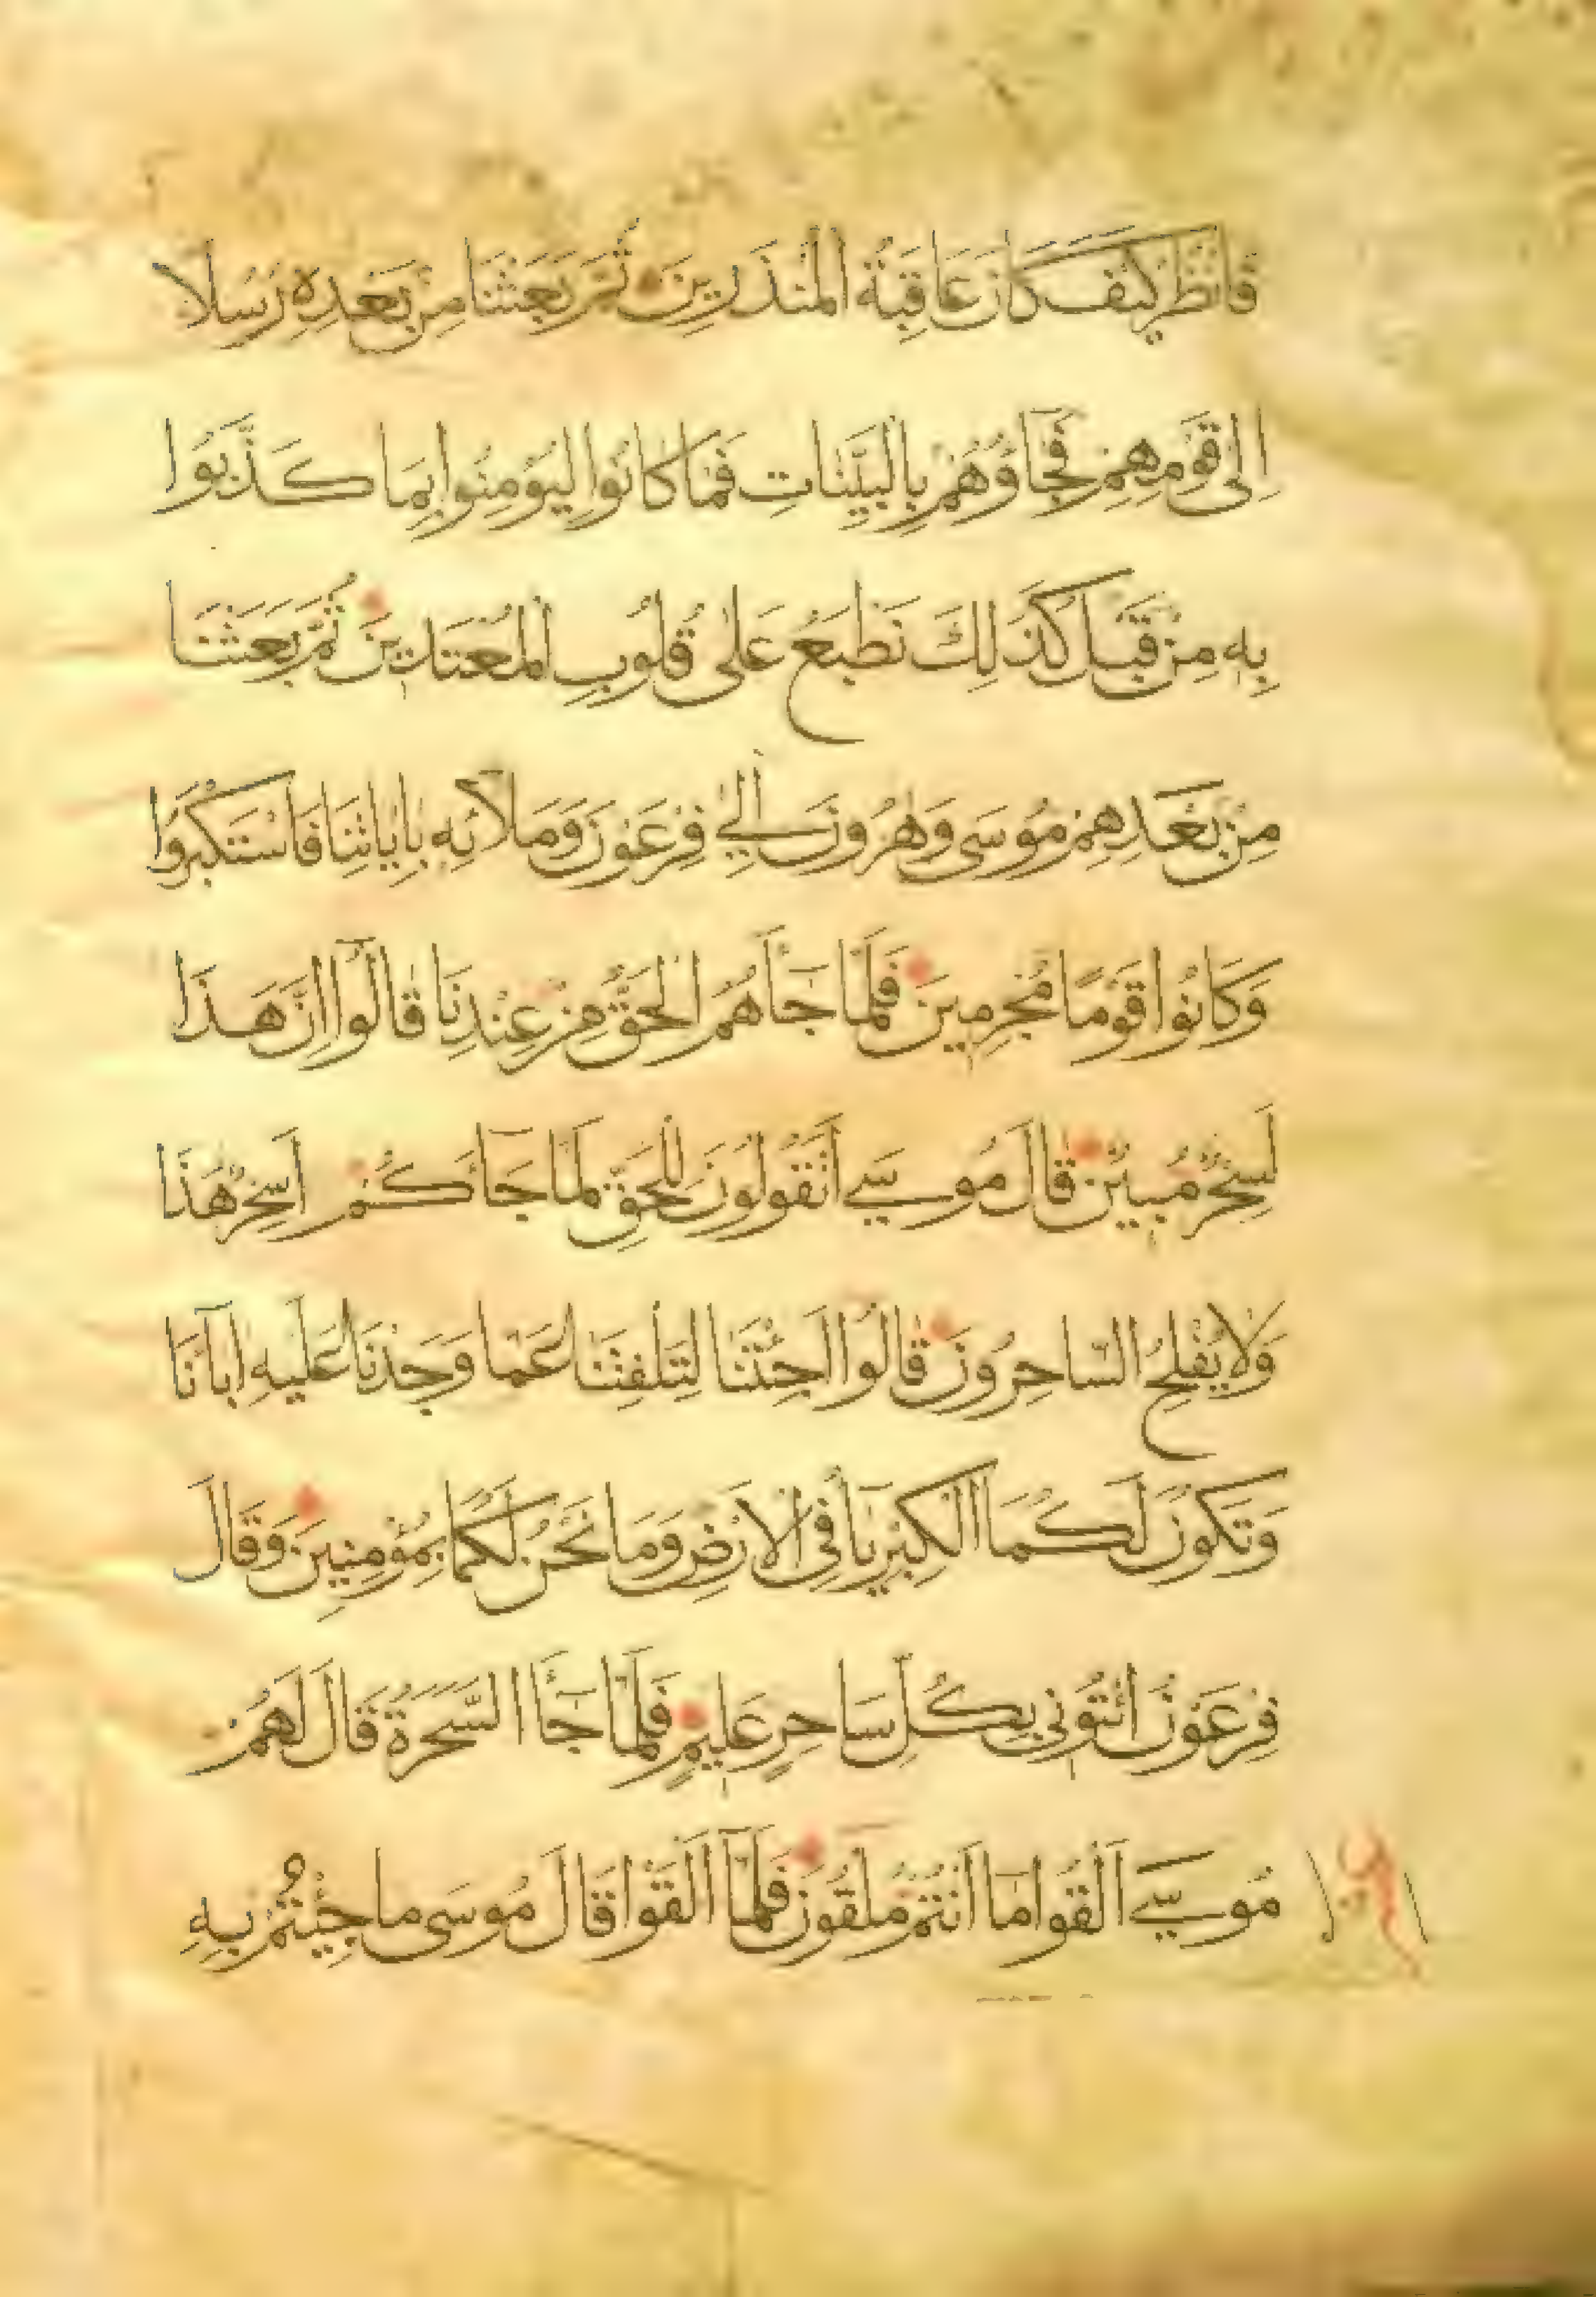 فَانْظُرْ كَيْفَ كَانَ عَاقِبَةُ الْمُنْذَرِينَ ثُمَّ بَعَثْنَا مِنْ بَعْدِهِ رُسُلًا
اِلٰى قَوْمِهِمْ فَجَاؤُهُمْ بِالْبَيِّنَاتِ فَمَا كَانُوا لِيُؤْمِنُوا بِمَا كَذَّبُوا
بِهِ مِنْ قَبْلُ كَذَلِكَ نَطْبَعُ عَلٰى قُلُوبِ الْمُعْتَدِينَ ثُمَّ بَعَثْنَا
مِنْ بَعْدِهِمْ مُوسَى وَهٰرُونَ اِلٰي فِرْعَوْنَ وَمَلَائِهِ بِاٰيَاتِنَا فَاسْتَكْبَرُوا
وَكَانُوا قَوْمًا مُجْرِمِينَ فَلَمَّا جَاَهُمُ الْحَقُّ مِنْ عِنْدِنَا قَالُوا اِنَّ هَذَا
لَسِحْرٌ مُبِينٌ قَالَ مُوسَي أَتَقُولُونَ لِلْحَقِّ لَمَّا جَاَكُمْ اَسِحْرٌ هٰذَا
وَلَا يُفْلِحُ السَّاحِرُونَ قَالُوا اَجِئْتَنَا لِتَلْفِتَنَا عَمَّا وَجَدْنَا عَلَيْهِ اٰبَآنَا
وَتَكُونَ لَكُمَا الْكِبْرِيَآُ فِى الْاَرْضِ وَمَا نَحْنُ لَكُمَا بِمُؤْمِنِينَ وَقَالَ
فِرْعَوْنُ ائْتُونِى بِكُلِّ سَاحِرٍ عَلِيمٍ فَلَمَّا جَآَ السَّحَرَةُ قَالَ لَهُمْ
مُوسَي اَلْقُوا مَا اَنْتُمْ مُلْقُونَ فَلَمَّا اَلْقَوْا قَالَ مُوسَى مَا جِئْتُمْ بِهِ